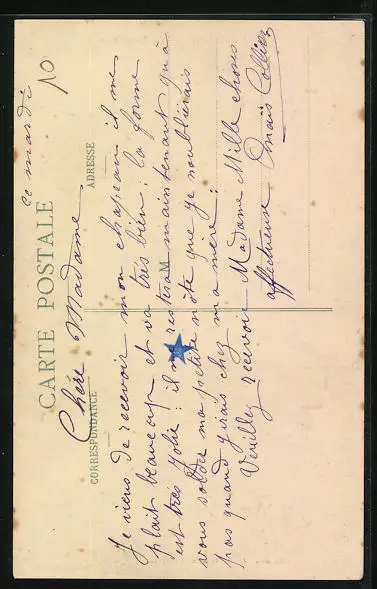 CARTE POSTALE
ce mardi
10
CORRESPONDANCE
ADRESSE
M
Chère Madame,
Je viens de recevoir mon chapeau il me
plait beaucoup et va très bien; la forme
est très jolie: il ne restera maintenant qu'à
vous solder ma petite note que je n'oublierais
pas quand j'irais chez ma mère;
Veuillez recevoir Madame Mille choses
affectueuse Anaïs Collier